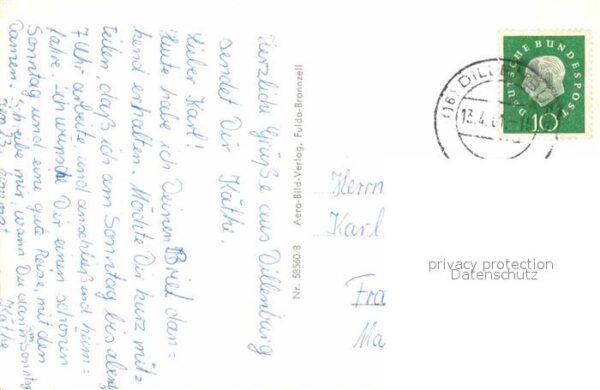 Herzliche Grüße aus Dillenburg
sendet Dir Käthe.
Lieber Karl!
Heute habe ich Deinen Brief dan=
kend erhalten. Möchte Dir kurz mit=
teilen, daß ich am Sonntag bis abends
7 Uhr arbeite und anschließend heim=
fahre. Ich wünsche Dir einen schönen
Sonntag und eine gute Reise mit den
Damen. mir, wann Du dann im Sonntag
Käthe
Nr. 58560/8 Aero-Bild-Verlag, Fulda-Bronnzell
DEUTSCHE BUNDESPOST
10
(16) DILLE
13.4.61
Herrn
Karl
Fra
Ma
privacy protection
Datenschutz